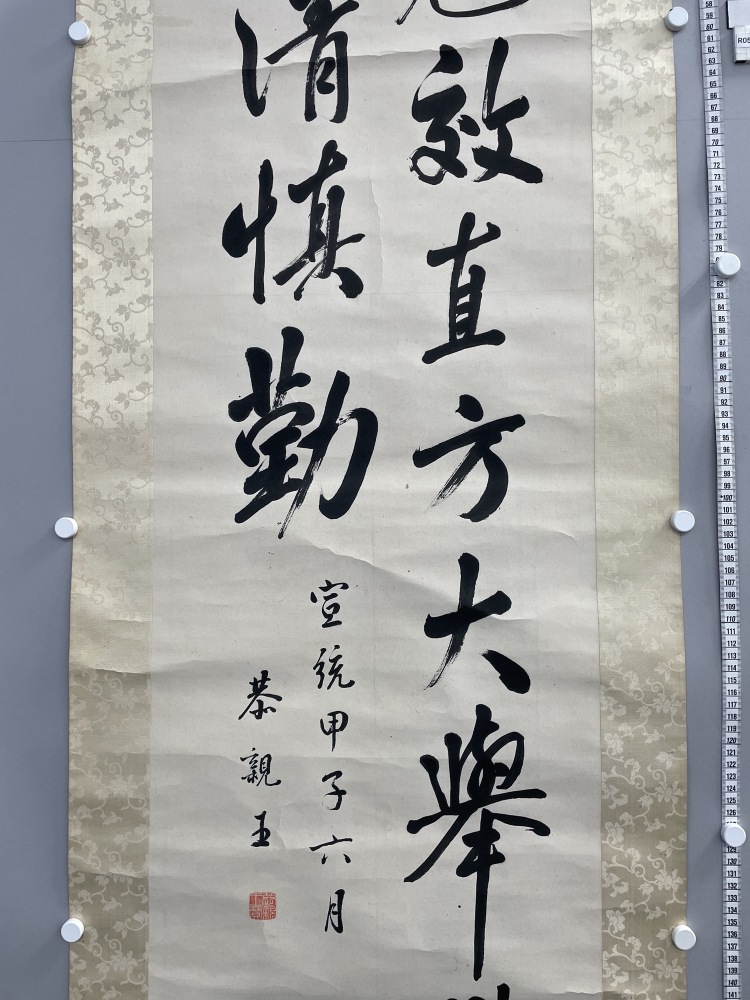 效直方大舉
清慎勤
宣統甲子六月
恭親王
R05